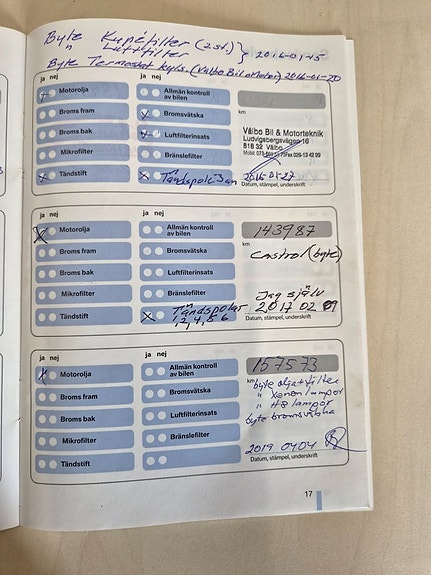 Byte Kupéfilter (2 st.) } 2016-01-15
" Luftfilter
Byte Termostat kyls. (Valbo Bil o Motor) 2016-01-20
ja nej ja nej
Motorolja Allmän kontroll av bilen
Broms fram Bromsvätska km
Broms bak Luftfilterinsats Valbo Bil & Motorteknik
Ludvigsbergsvägen 16
818 32 Valbo
Mikrofilter Bränslefilter
Tändstift Tändspole 3an 2016-01-27
Datum, stämpel, underskrift
ja nej ja nej
Motorolja Allmän kontroll av bilen 143987
km
Broms fram Bromsvätska Castrol (byte)
Broms bak Luftfilterinsats
Mikrofilter Bränslefilter Jag själv
Tändstift Tändspolar 2017 02 09
1, 2, 4, 5, 6 Datum, stämpel, underskrift
ja nej ja nej
Motorolja Allmän kontroll av bilen 157573
km byte olja + filter
Broms fram Bromsvätska " Xenon lampor
" H8 lampor
Broms bak Luftfilterinsats byte bromsvätska
Mikrofilter Bränslefilter
2019 04 04
Tändstift Datum, stämpel, underskrift
17